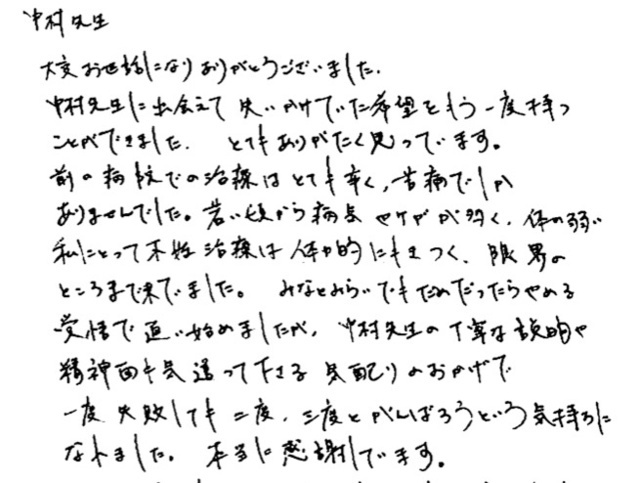 中村先生
大変お世話になりありがとうございました.
中村先生に出会えて 失いかけていた希望をもう一度持つ
ことができました. とてもありがたく思っています。
前の病院での治療はとても辛く,苦痛でしか
ありませんでした。若い頃から病気やケガが多く、体の弱い
私にとって不妊治療は体力的にもきつく、限界の
ところまで来ていました。 みなとみらいでもだめだったらやめる
覚悟で通い始めましたが、中村先生の丁寧な説明や
精神面も気遣って下さる気配りのおかげで
一度失敗しても二度、三度とがんばろうという気持ちに
なれました。 本当に感謝しています。